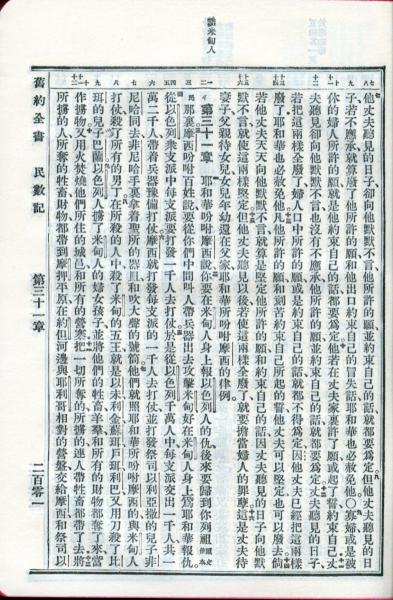 米甸人
他丈夫聽見的日子卻向他默默不言他所許的願並約束自己的話就都要爲定但他丈夫聽見的日
子若不應承就算廢了他所許的願和他出口約束自己的冒失話耶和華也必赦免他〇寡婦或是被
休的婦人所許的願就是他約束自己的話都要爲定他若在丈夫家裏許了願或起了誓約束自己丈
夫聽見卻向他默默不言也沒有不應承他所許的願並約束自己的話就都要爲定丈夫聽見的日子
若把這兩樣全廢了婦人口中所許的願或是約束自己的話就都不得爲定因他丈夫已經把這兩樣
廢了耶和華也必赦免他凡他所許的願和刻苦約束自己所起的誓他丈夫可以堅定也可以廢去倘
若他丈夫天天向他默默不言就算是堅定他所許的願和約束自己的話因丈夫聽見的日子向他默
默不言就使這兩樣堅定但他丈夫聽見以後若使這兩樣全廢了就要擔當婦人的罪孽這是丈夫待
妻子父親待女兒女兒年幼還在父家耶和華所吩咐摩西的律例
第三十一章 耶和華吩咐摩西說你要在米甸人身上報以色列人的仇後來要歸到你列祖
那裏摩西吩咐百姓說要從你們中間叫人帶兵器出去攻擊米甸好在米甸人身上爲耶和華報仇
從以色列衆支派中每支派要打發一千人去打仗於是從以色列千萬人中每支派交出一千人共一
萬二千人帶着兵器豫備打仗摩西就打發每支派的一千人去打仗並打發祭司以利亞撒的兒子非
尼哈同去非尼哈手裏拿着聖所的器皿和吹大聲的號筒他們就照耶和華所吩咐摩西的與米甸人
打仗殺了所有的男丁在所殺的人中殺了米甸的五王就是以未利金蘇珥戶珥利巴又用刀殺了比
珥的兒子巴蘭以色列人擄了米甸人的婦女孩子並將他們的牲畜羊羣和所有的財物都奪了來當
作擄物又用火焚燒他們所住的城邑和所有的營寨把一切所奪的所擄的連人帶牲畜都帶了去將
所擄的人所奪的牲畜財物都帶到摩押平原在約但河邊與耶利哥相對的營盤交給摩西和祭司以
舊約全書 民數記 第三十一章 二百零一